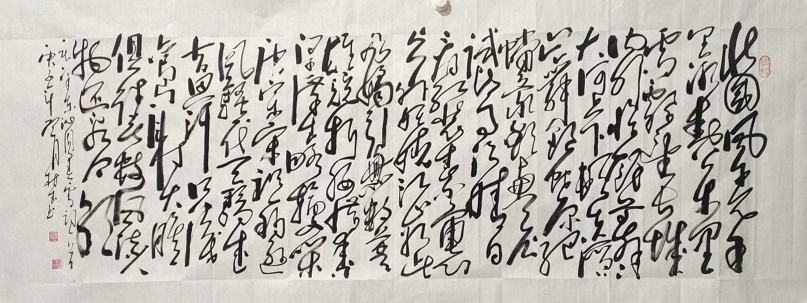 北国风光千
里冰封万里
雪飘望长城
内外惟余莽莽
大河上下顿失滔
滔山舞银蛇原驰
蜡象欲与天公
试比高须晴日
看红装素裹
分外妖娆江山如此
多娇引无数英
雄竞折腰惜秦皇
汉武略输文采
唐宗宋祖稍逊
风骚一代天骄成
吉思汗只识
弯弓射大雕
俱往矣数风流人
物还看今朝
毛泽东沁园春雪词
年月书